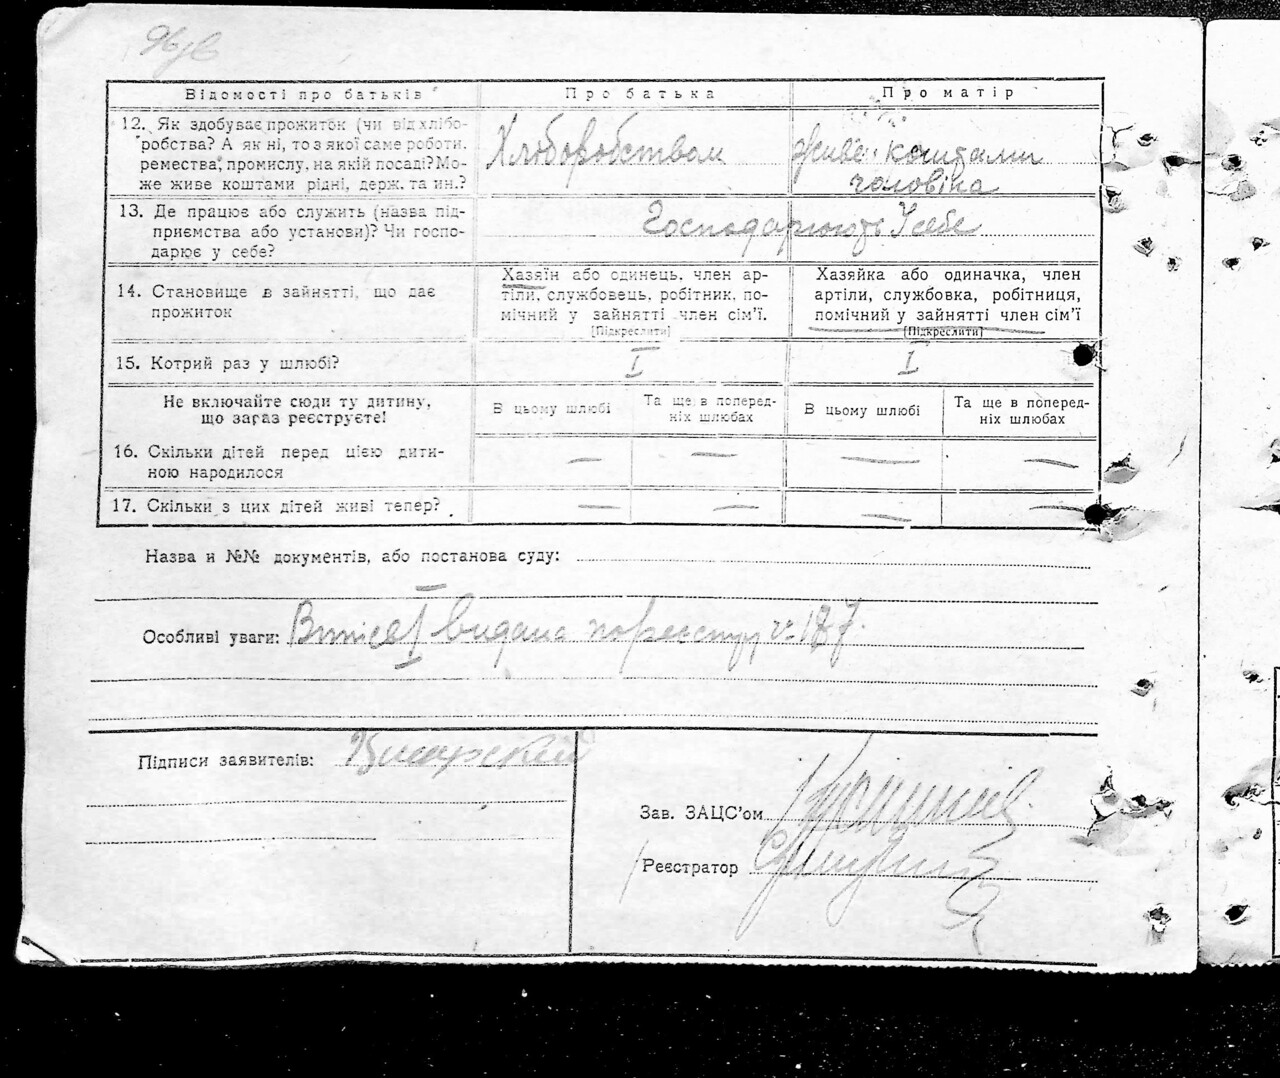 Відомості про батьків Про батька Про матір
12. Як здобуває прожиток (чи від хлібо-
робства? А як ні, то з якої саме роботи,
ремества, промислу, на якій посаді? Мо-
же живе коштами рідні, держ. та ин.?
Хлиборобством
живе коштами
чоловіка
13. Де працює або служить (назва під-
приємства або установи)? Чи госпо-
дарює у себе?
Господарюють У себе
14. Становище в зайнятті, що дає
прожиток
Хазяїн або одинець, член ар-
тіли, службовець, робітник, по-
мічний у зайнятті член сім'ї.
[Підкреслити]
Хазяйка або одиначка, член
артіли, службовка, робітниця,
помічний у зайнятті член сім'ї
[Підкреслити]
15. Котрий раз у шлюбі? I I
Не включайте сюди ту дитину,
що зараз реєструєте!
В цьому шлюбі
Та ще в поперед-
ніх шлюбах
В цьому шлюбі
Та ще в поперед-
ніх шлюбах
16. Скільки дітей перед цією дити-
ною народилося — — — —
17. Скільки з цих дітей живі тепер? — — — —
Назва и №№ документів, або постанова суду:
Особливі уваги: I видана по реєстру ч. 187.
Підписи заявителів:
Зав. ЗАЦС'ом
Реєстратор